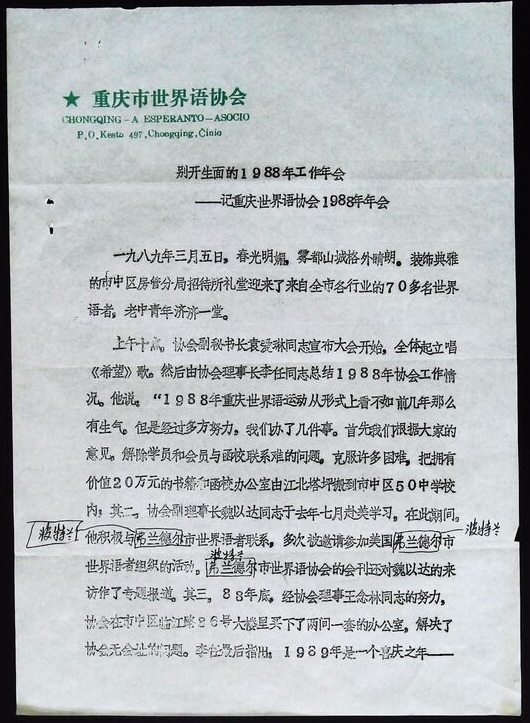 ★ 重庆市世界语协会
CHONGQING-A ESPERANTO-ASOCIO
P.O.Kesto 497,Chongqing,Ĉinio
别开生面的1988年工作年会
——记重庆世界语协会1988年年会
一九八九年三月五日，春光明媚，雾都山城格外晴朗。装饰典雅
的市中区房管分局招待所礼堂迎来了来自全市各行业的70多名世界
语者，老中青年济济一堂。
上午十点，协会副秘书长袁爱琳同志宣布大会开始，全体起立唱
《希望》歌。然后由协会理事长李任同志总结1988年协会工作情
况。他说，“1988年重庆世界语运动从形式上看不如前几年那么
有生气。但是经过多方努力，我们办了几件事。首先我们根据大家的
意见，解除学员和会员与函校联系难的问题。克服许多困难，把拥有
价值20万元的书籍和函校办公室由江北塔坪搬到市中区50中学校
内；其二，协会副理事长魏以达同志于去年七月赴美学习，在此期间，
波特兰
波特兰
他积极与弗兰德尔市世界语者联系，多次被邀请参加美国弗兰德尔市
波特兰
世界语者组织的活动。弗兰德尔市世界语协会的会刊还对魏以达的来
访作了专题报道。其三，88年底，经协会理事王念林同志的努力，
协会在市中区临江路26号大楼里买下了两间一套的办公室，解决了
协会无会址的问题。李任最后指出，1989年是一个喜庆之年——